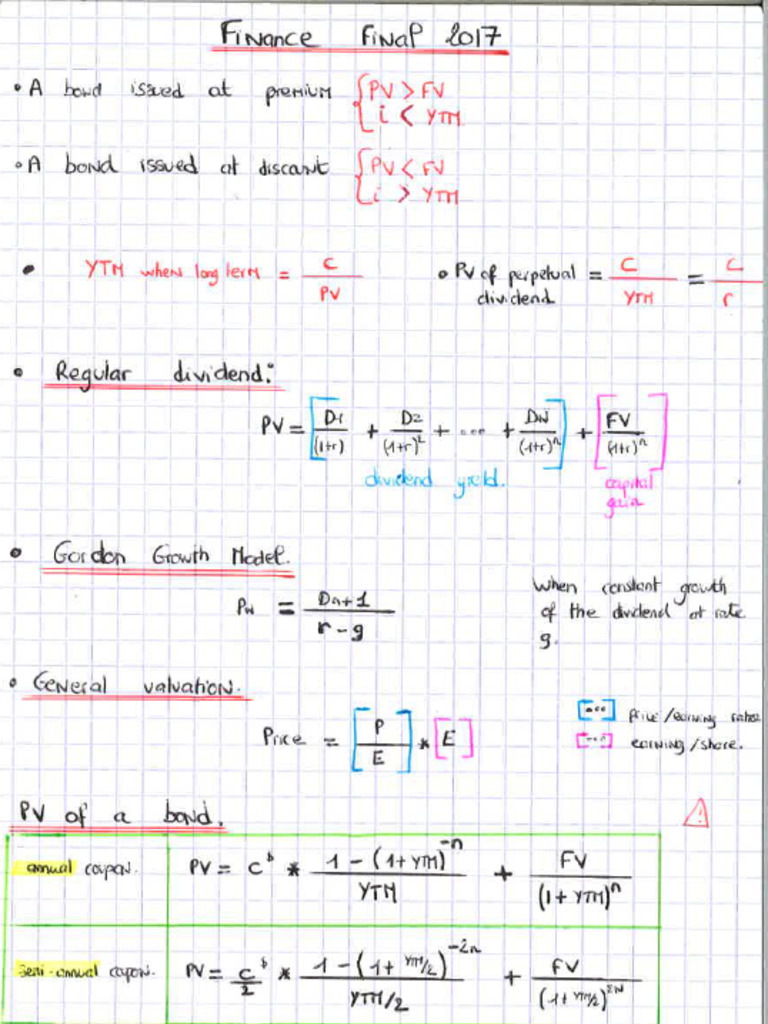 Finance Final 2017
• A bond issued at premium { PV > FV
i < YTM
• A bond issued at discount { PV < FV
i > YTM
• YTM when long term = C / PV • PV of perpetual dividend = C / YTM = C / r
• Regular dividend:
PV = [ D1/(1+r) + D2/(1+r)² + ... + DN/(1+r)ⁿ ] + [ FV/(1+r)ⁿ ]
dividend yield. capital gain
• Gordon Growth Model.
PN = Dn+1 / r - g
When constant growth
of the dividend at rate
g.
• General valuation.
Price = [ P / E ] * [ E ]
[...] price/earning ratio
[...] earning/share.
PV of a bond.
annual coupon. PV = C^$ * 1 - (1 + YTM)^-n / YTM + FV / (1 + YTM)^n
semi-annual coupon. PV = C^$/2 * 1 - (1 + YTM/2)^-2n / YTM/2 + FV / (1 + YTM/2)^2N